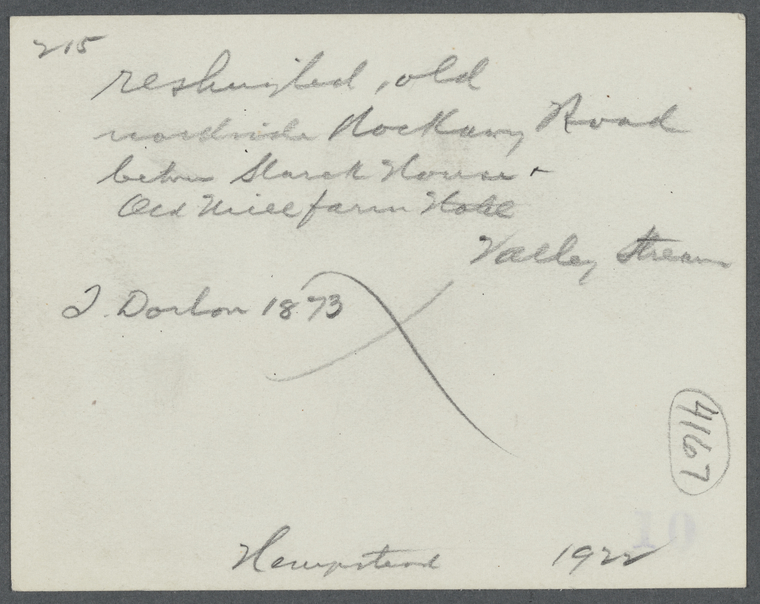 215
reshingled, old
northside Rockaway Road
betw Starck House +
Old Mill farm Hotel
Valley Stream
Dorlon 1873
4167
10
Hempstead 1922